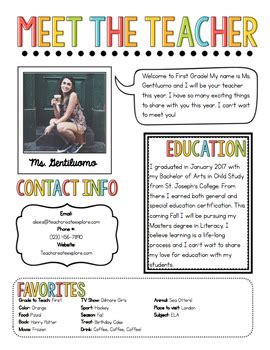 MEET THE TEACHER
Welcome to First Grade! My name is Ms.
Gentiluomo and I will be your teacher
this year. I have so many exciting things
to share with you this year. I can't wait
to meet you!
Ms. Gentiluomo
EDUCATION
I graduated in January 2017 with
my Bachelor of Arts in Child Study
from St. Joseph's College. From
there I earned both general and
special education certification. This
coming Fall I will be pursuing my
Masters degree in Literacy. I
believe learning is a life-long
process and I can't wait to share
my love for education with my
students.
CONTACT INFO
Email:
Phone #:
(123) 456-7890
Website:
Teachcreateexplore.com
FAVORITES
Grade to Teach: First
Color: Orange
Food: Pasta
Book: Harry Potter
Movie: Frozen
TV Show: Gilmore Girls
Sport: Hockey
Season: Fall
Treat: Birthday Cake
Drink: Coffee, Coffee, Coffee!
Animal: Sea Otters!
Place to visit: London
Subject: ELA